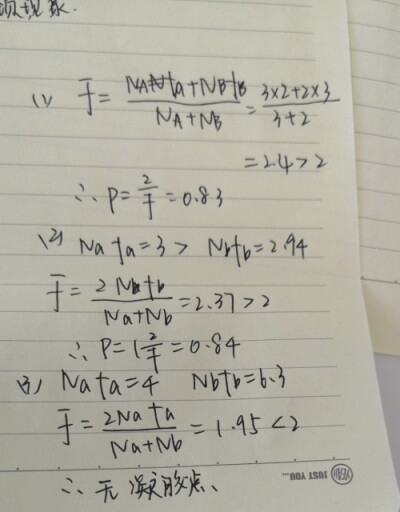 现象.
(1) f̄ = (NAfa+NBfB)/(NA+NB) = (3×2+2×3)/(3+2)
= 2.4 > 2
∴ P = 2/f̄ = 0.83
(2) Nafa = 3 > Nbfb = 2.94
f̄ = 2Nbfb/(Na+Nb) = 2.37 > 2
∴ P = 2/f̄ = 0.84
(3) Nafa = 4 Nbfb = 6.3
f̄ = 2Nafa/(Na+Nb) = 1.95 < 2
∴ 无凝胶点、
JUST YOU...